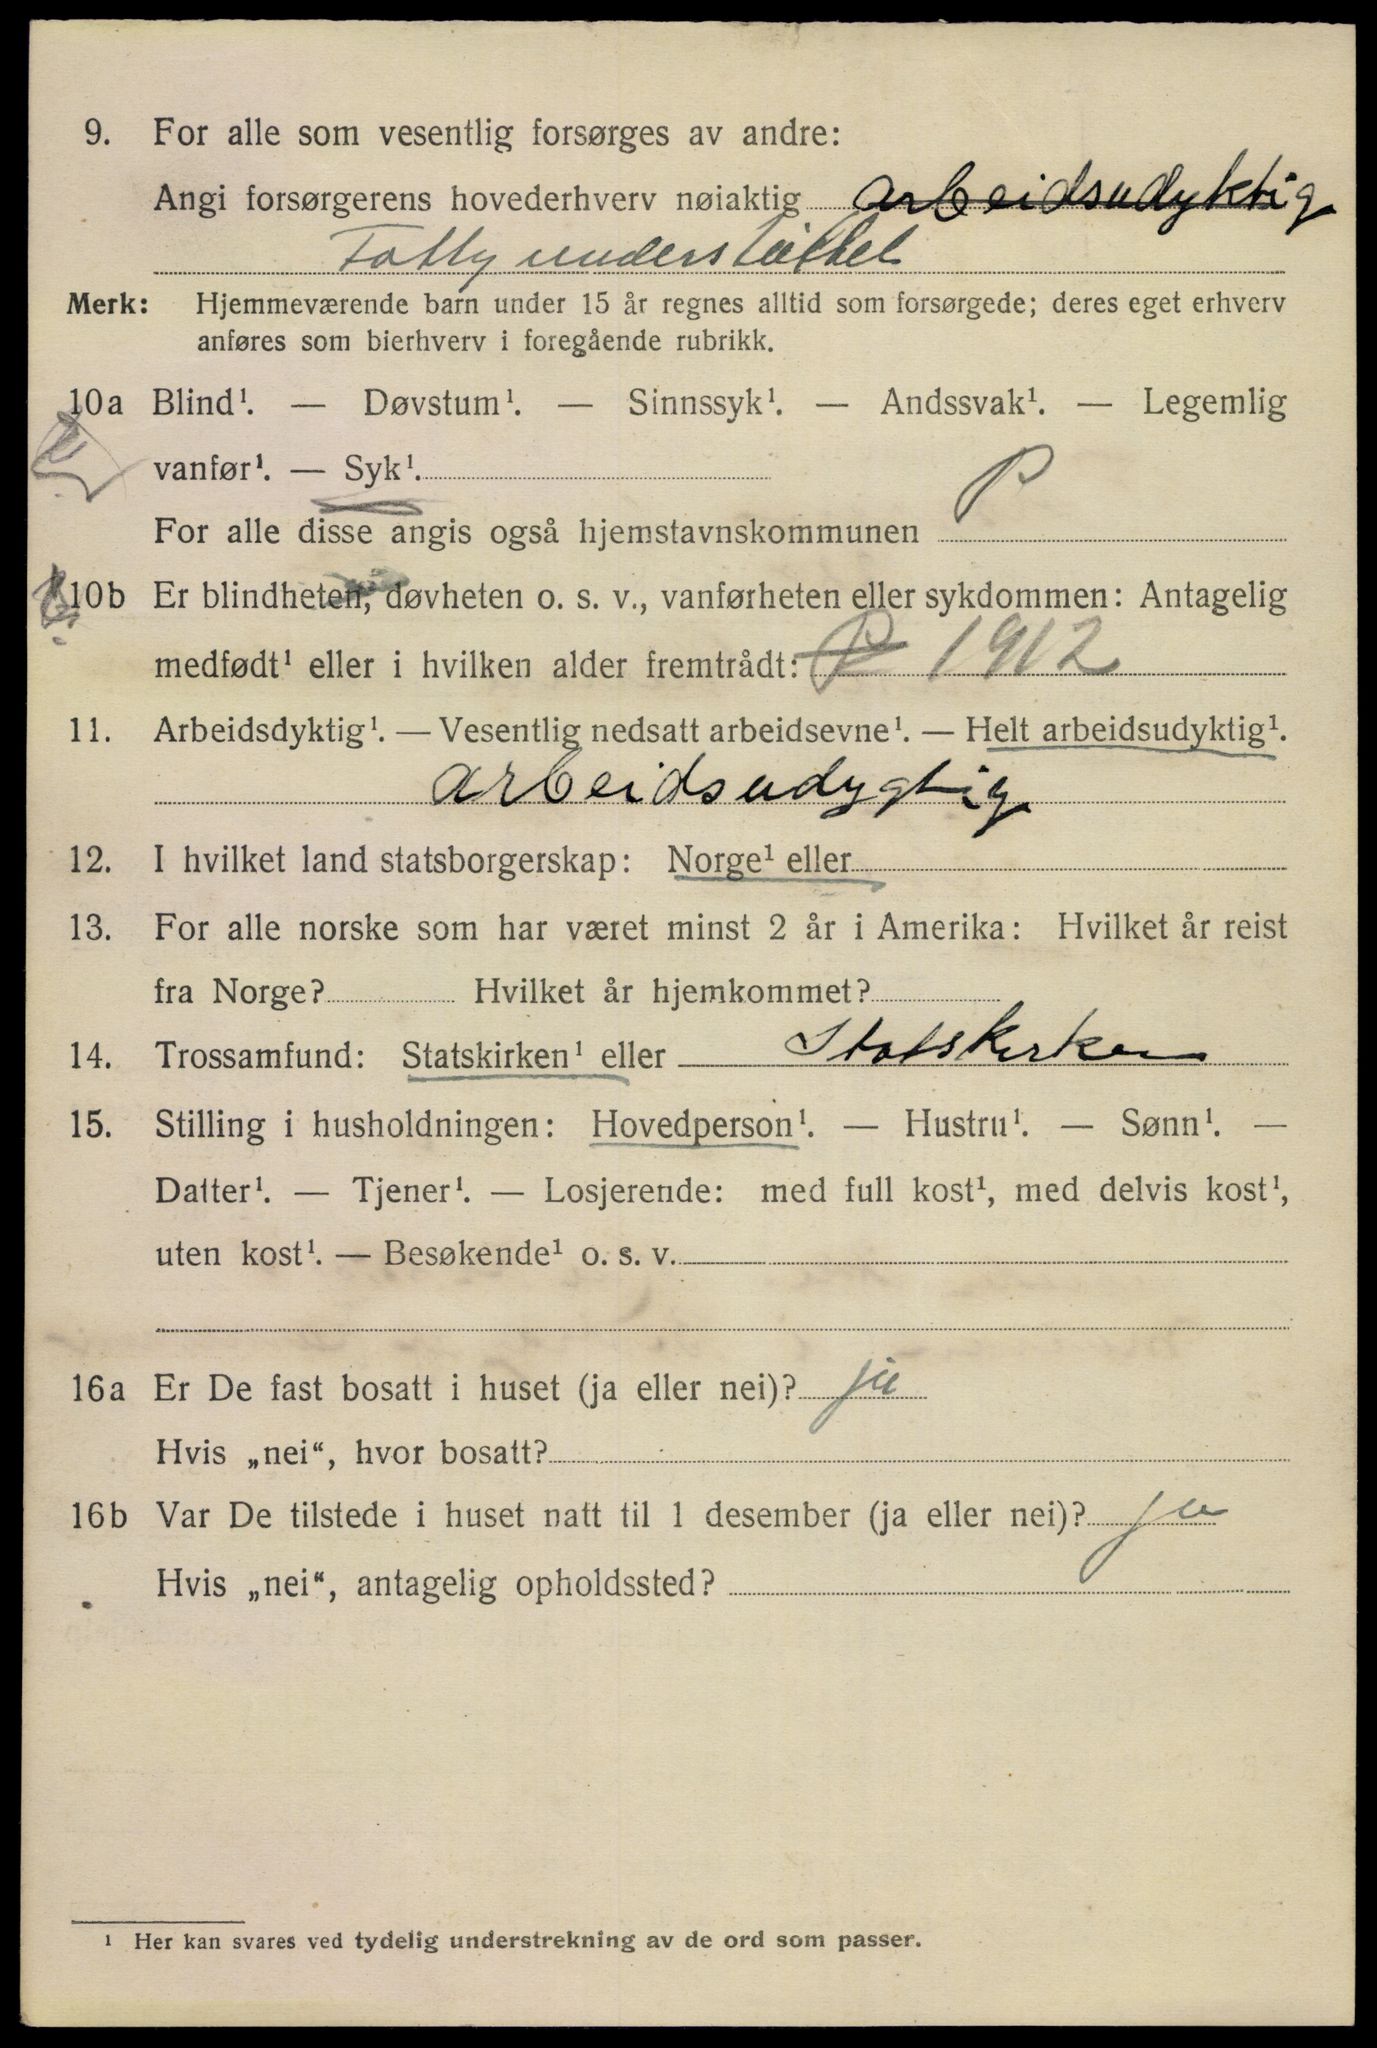 9. For alle som vesentlig forsørges av andre:
Angi forsørgerens hovederhverv nøiaktig arbeidsudyktig
Fattigunderstøttet
Merk: Hjemmeværende barn under 15 år regnes alltid som forsørgede; deres eget erhverv
anføres som bierhverv i foregående rubrikk.
10a Blind¹. — Døvstum¹. — Sinnssyk¹. — Andssvak¹. — Legemlig
vanfør¹. — Syk¹.
For alle disse angis også hjemstavnskommunen P
10b Er blindheten, døvheten o. s. v., vanførheten eller sykdommen: Antagelig
medfødt¹ eller i hvilken alder fremtrådt: P 1912
11. Arbeidsdyktig¹. — Vesentlig nedsatt arbeidsevne¹. — Helt arbeidsudyktig¹.
arbeidsudygtig
12. I hvilket land statsborgerskap: Norge¹ eller
13. For alle norske som har været minst 2 år i Amerika: Hvilket år reist
fra Norge? Hvilket år hjemkommet?
14. Trossamfund: Statskirken¹ eller Statskirken
15. Stilling i husholdningen: Hovedperson¹. — Hustru¹. — Sønn¹. —
Datter¹. — Tjener¹. — Losjerende: med full kost¹, med delvis kost¹,
uten kost¹. — Besøkende¹ o. s. v.
16a Er De fast bosatt i huset (ja eller nei)? ja
Hvis „nei“, hvor bosatt?
16b Var De tilstede i huset natt til 1 desember (ja eller nei)? ja
Hvis „nei“, antagelig opholdssted?
¹ Her kan svares ved tydelig understrekning av de ord som passer.